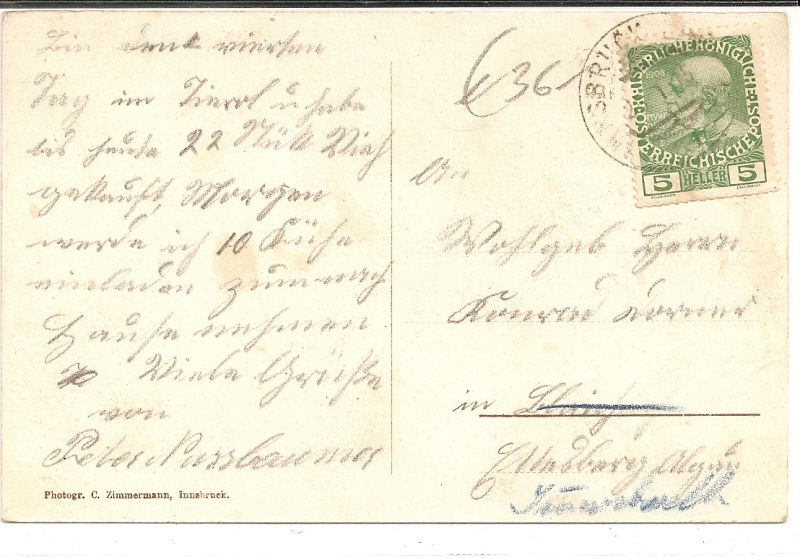 Bin den vierten
Tag im Tierol u habe
bis heute 22 Stük Vieh
gekauft, Morgen
werde ich 10 Kühe
einladen zum nach
Hause nehmen
Viele Grüße
von
Peter Nussbaumer
Photogr. C. Zimmermann, Innsbruck.
6 36
INNSBRUCK
1908
KAISERLICHE KÖNIGLICHE
ÖSTERREICHISCHE POST
5 HELLER 5
An
Wohlgeb Herrn
Konrad Dorner
in
Algäu